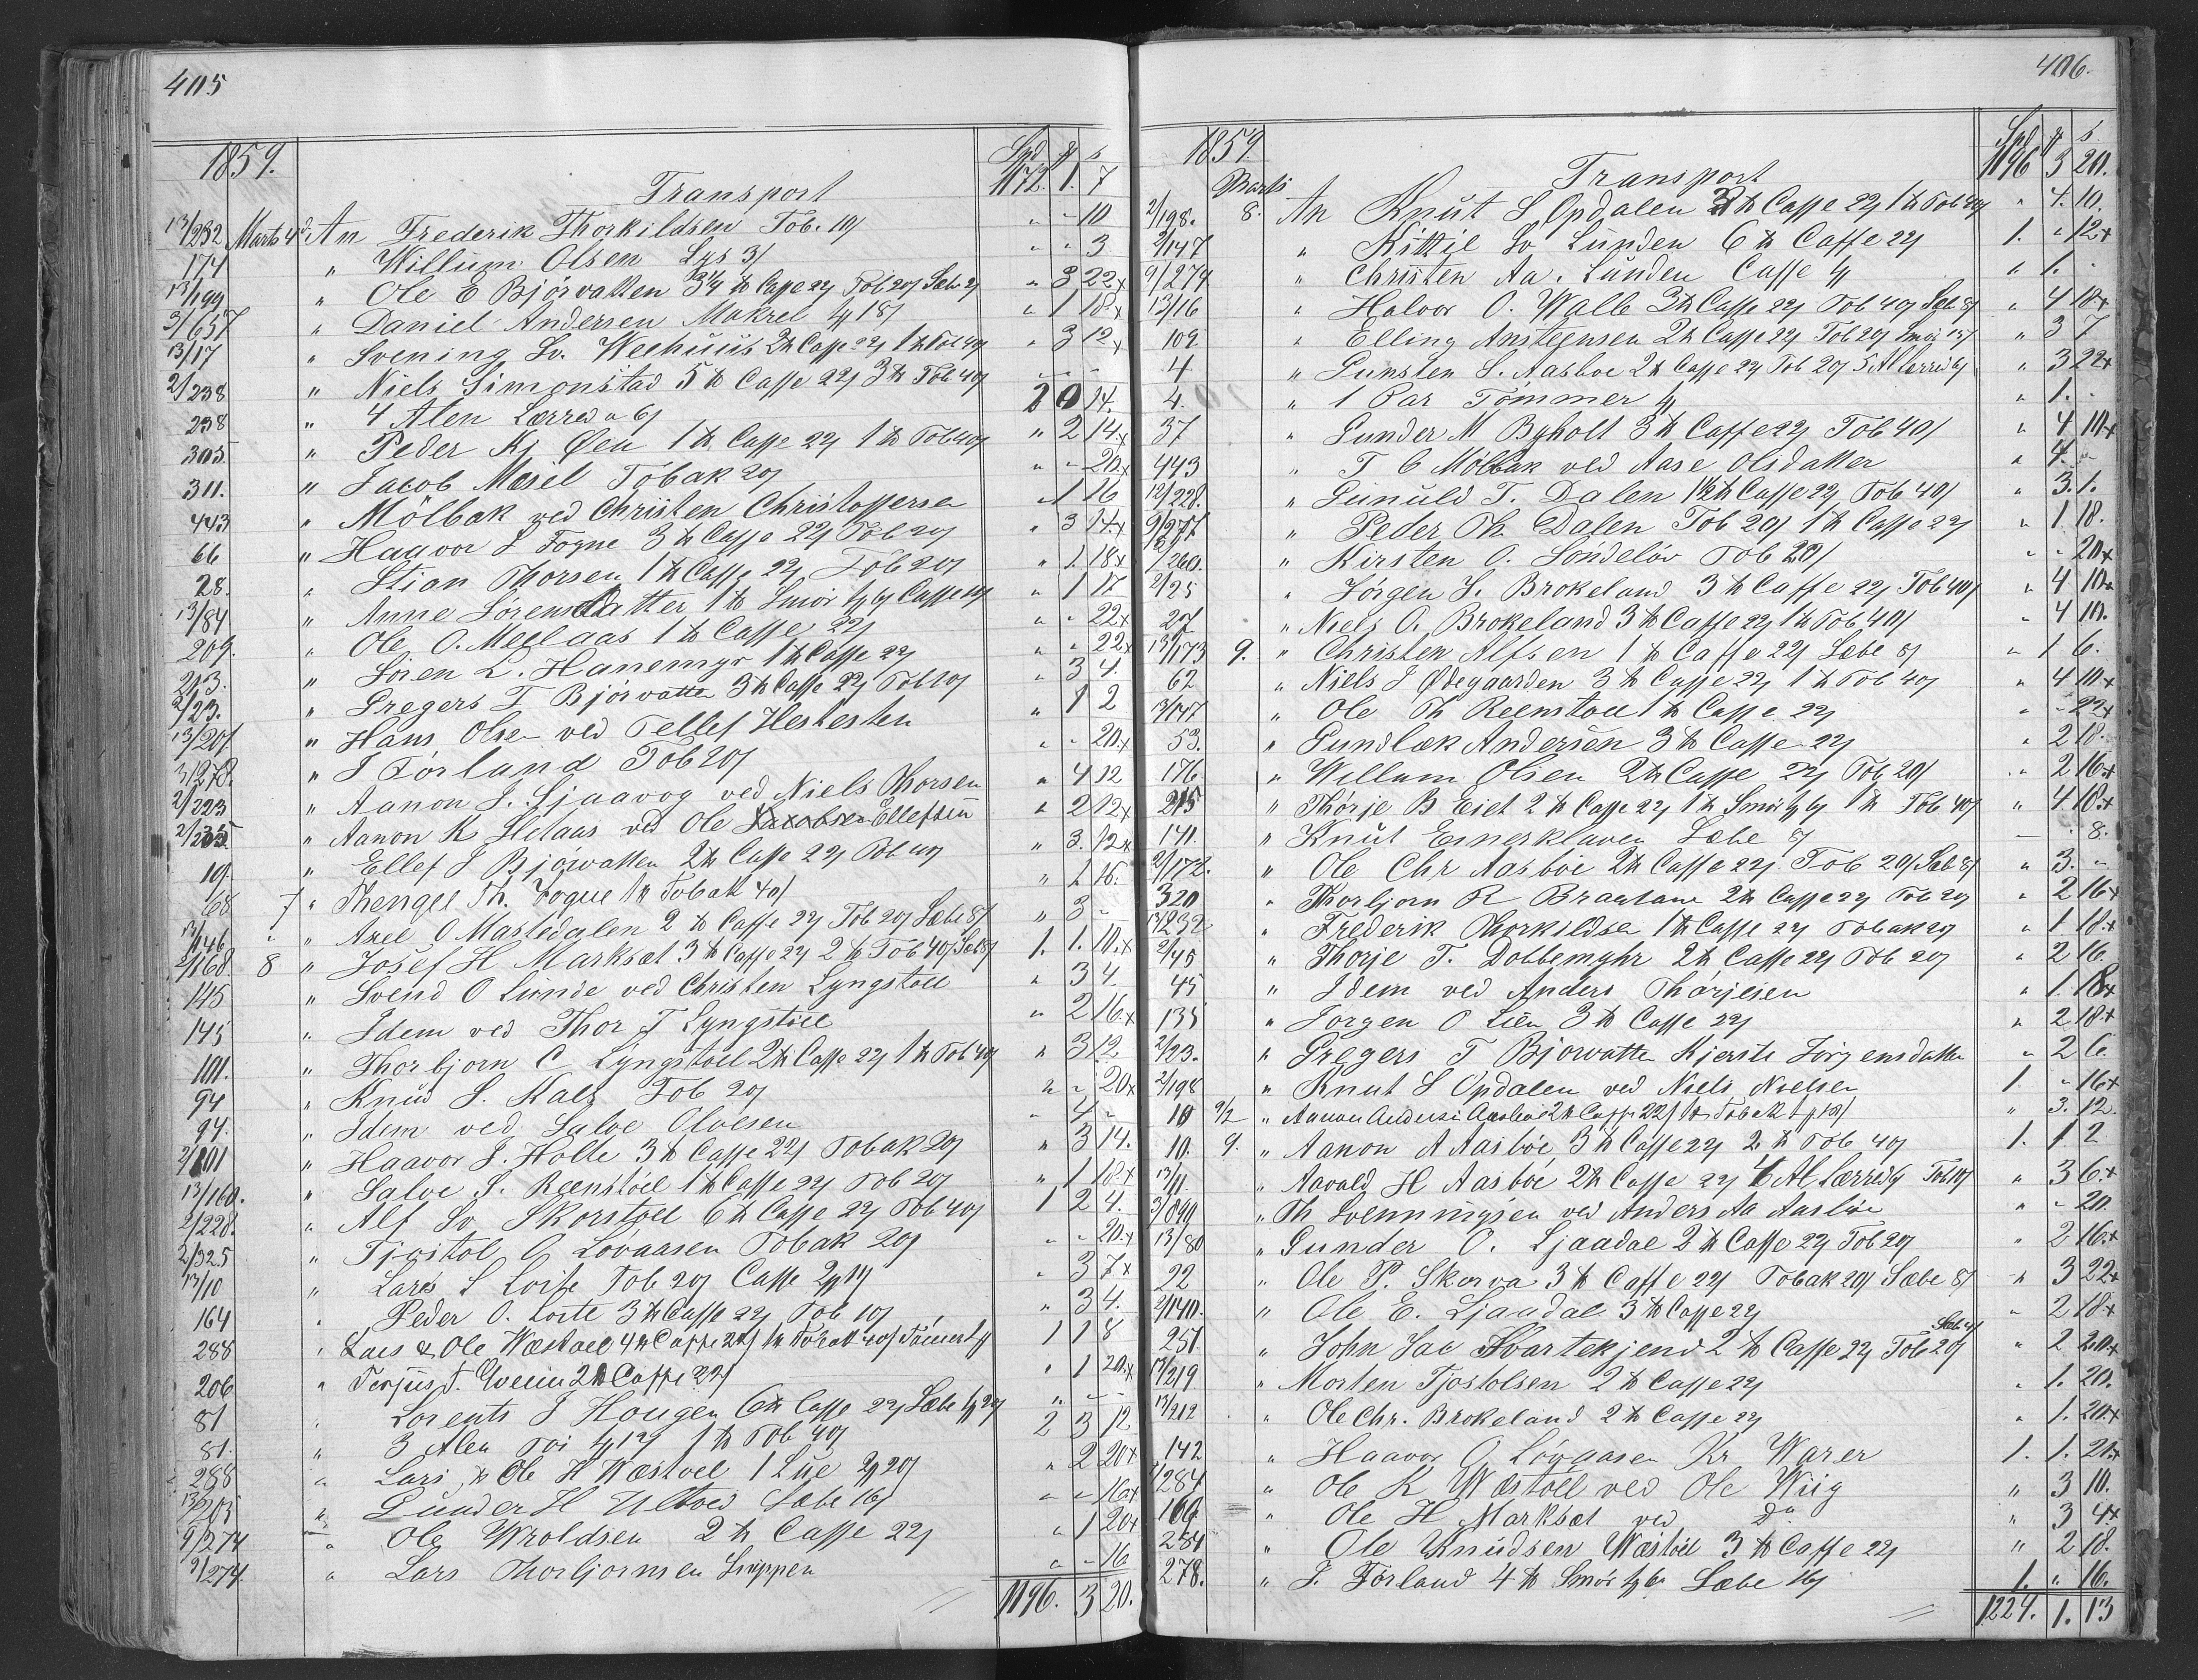 405
1859. Spd. s
Transport 1172. 1. 7
13/232 Marts 4d An Frederik Thorkildsen Tob. 10/ " - 10
174 " Willum Olsen Lys 3/ " " 3
13/199 " Ole E Bjørvatten Caffe 22/ Tob 20/ " 3 22x
3/657 " Daniel Andersen Makrel 18/ " 1 18x
13/17 " Svening Sv. Weehuus 2 Caffe 22/ 1 Tob 40/ " 3 12x
2/238 " Niels Simonstad 5 Caffe 22/ 3 Tob 40/
238 " 4 Alen Lærred a 6/ 2 0 14.
305. " Peder Kr Øen 1 Caffe 22/ 1 Tob 40/ " 2 14.x
311. " Jacob Mesel Tobak 20/ " - 20x
443 " Mölbak ved Christen Christoffersen 1 16
66 " Haavor J Fogne 3 Caffe 22/ Tob 20/ " 3 14x
28. " Stian Thorsen 1 Caffe 22/ Tob 20/ " 1. 18x
13/84 " Anne Sörensdatter 1 Smör Caffe " 1 17
209. " Ole O. Meelaas 1 Caffe 22/ " - 22x
213. " Sören L. Hanemyr 1 Caffe 22/ " " 22x
2/23. " Gregers T Bjorvatten 3 Caffe 22/ Tob 10/ " 3 4.
13/201 " Hans Olsen ved Tellef Hestesten " 1 2
3/278. " J Förland Tob 20/ " - 20.x
2/223 " Aanon J. Ljaavog ved Niels Thorsen " 4 12
2/235 " Aanon K Stelaas ved Ole Ellefsen " 2 12x
10. " Ellef J Bjorvatten 2 Caffe 22/ Tob 40/ " 3. 12x
/68 7 " Thengel Th. Fogne 1 Tobak 40/ " 1 16.
13/146 " " Axel O Masledalen 2 Caffe 22/ Tob 20/ Sæbe 8/ " 3 -
2/168. 8 " Josef H Marksæt 3 Caffe 22/ 2 Tob 40/ Sæb 8/ 1. 1. 10.x
145 " Svend O Lunde ved Christen Lyngstoel " 3 4.
145 " Idem ved Thor T Lyngstoel " 2 16x
101. " Thorbjorn C Lyngstoel 2 Caffe 22/ 1 Tob 40/ " 3 12
94 " Knud S. Kals Tob 20/ " - 20x
94. " Idem ved Salve Olvesen - 4 -
2/101 " Haavor J. Holte 3 Caffe 22/ Tobak 20/ " 3 14.
13/160. " Salve J. Reenstöel 1 Caffe 22/ Tob 20/ " 1 18x
2/228. " Alf Sv. Skorstöel 6 Caffe 22/ Tob 40/ 1 2 4.
2/325 " Tjostol O Lövaasen Tobak 20/ " - 20.x
13/10 " Lars L Loite Tob 20/ Caffe " 3 7x
164 " Peder O. Loite 3 Caffe 22/ Tob 10/ " 3 4.
288 " Lars & Ole Wæstoel 4 Caffe 22/ 1 Tobak 40/ 1 1 8
206 " Terjus T. 2 Caffe 22/ " 1 20x
81 Lorents J Hougen 6 Caffe 22/ Sæbe " - -
81. " 3 Alen Toi 1 Tob 40/ 2 3 12.
288 " Lars & Ole H Wæstoel 1 Lue 20/ " 2 20x
13/203 " Gunder H Ulltoed Sæbe 16/ " " 16x
9/274 " Ole Wroldsen 2 Caffe 22/ " 1 20x
9/274. " Lars Thorbjornsen Snippen " - 16
1196. 3 20.
406.
1859 Spd s.
Marts Transport 1196 3 20.
2/198. 8. An Knut S Opdalen 3 Caffe 22/ 1 Tob 40/ " 4. 10.
2/147 " Kittil Sv Lunden 6 Caffe 22/ 1. " 12x
9/274 " Christen Aa. Lunden Caffe " 1. -
13/16 " Halvor O. Walle 3 Caffe 22/ Tob 40/ Sæb 8/ " 4 18x
109. " Elling Anstensen 2 Caffe 22/ Tob 20/ Smör " 3 7
4 " Gunsten S. Aasboe 2 Caffe 22/ Tob 20/ 5 Al Lærred 6/ " 3 22x
4. " 1 Par Tömmer " 1. .
37 " Gunder M Byholt 3 Caffe 22/ Tob 40/ " 4 10x
443 " T C Mölbak ved Aase Olsdatter " 4. -
12/228. " Gunuld T. Dalen 1½ Caffe 22/ Tob 40/ " 3. 1.
9/277 " Peder Th. Dalen Tob 20/ 1 Caffe 22/ " 1. 18.
/260. " Kirsten O. Söndelöv Tob 20/ " - 20x
2/25 " Jörgen J. Brokeland 3 Caffe 22/ Tob 40/ " 4 10x
27 " Niels O. Brokeland 3 Caffe 22/ 1 Tob 40/ " 4 10.
13/173 9. " Christen Alfsen 1 Caffe 22/ Sæbe 8/ " 1 6.
62 " Niels J Ødegaarden 3 Caffe 22/ 1 Tob 40/ " 4 10x
13/147 " Ole Th Reenstoel 1 Caffe 22/ " - 22x
53. " Gundlæk Andersen 3 Caffe 22/ " 2 18.
176. " Willum Olsen 2 Caffe 22/ Tob 20/ " 2 16x
215 " Thorje B Eiet 2 Caffe 22/ 1 Smör 1 Tob 40/ " 4 18x
141. " Knut Emerklaven Sæbe 8/ - . 8.
2/172. " Ole Chr Aasböe 2 Caffe 22/ Tob 20/ Sæb 8/ " 3. "
320 " Thorbjorn R Braatane 2 Caffe 22/ Tob 20/ " 2 16x
13/232 " Frederik Thorkildsen 1 Caffe 22/ Tobak 20/ " 1 18x
2/45 " Thorje T. Dobbemyhr 2 Caffe 22/ Tob 20/ " 2 16.
45 " Idem ved Anders Thorjesen " 1. 18x
135 " Jorgen O Lien 3 Caffe 22/ " 2 18x
2/23. " Gregers T Bjorvatten Kjerste Jörgensdatter " 2 6.
2/198 " Knut S Opdalen ved Niels Nielsen 1 " 16x
10 9/2 " Aanon Anders: Aasböe 2 Caffe 22/ 1 Tobak " 3. 12.
10. 9. " Aanon A Aasböe 3 Caffe 22/ 2 Tob 40/ 1. 1 2
13/11 " Aavald H Aasböe 2 Caffe 22/ 4 Al Lærred 6/ Tob 10/ " 3 6x
3/699 " Th Svenmyren ved Anders Aa Aasböe " - 20.
13/80 " Gunder O. Ljaadal 2 Caffe 22/ Tob 20/ " 2 16x
22 " Ole P. Skorva 3 Caffe 22/ Tobak 20/ Sæbe 8/ " 3 22x
2/140. " Ole E. Ljaadal 3 Caffe 22/ " 2 18x
251. " John Jac Svartekjend 2 Caffe 22/ Tob 20/ Sæb 4/ " 2 20x
13/219 " Morten Tjostolsen 2 Caffe 22/ " 1. 20.
13/212 " Ole Chr. Brokeland 2 Caffe 22/ " 1. 20x
142 " Haavor O Lövaasen Kr Warer 1. 1. 21x
284 " Ole K Wæstöl ved Ole Wiig " 3 10.
166 " Ole H Marksæt ved Do " 3 4x
284 " Ole Knudsen Wæstöel 3 Caffe 22/ " 2 18.
278. " J. Förland 4 Smör Sæbe 16/ 1. " 16.
1224. 1. 13